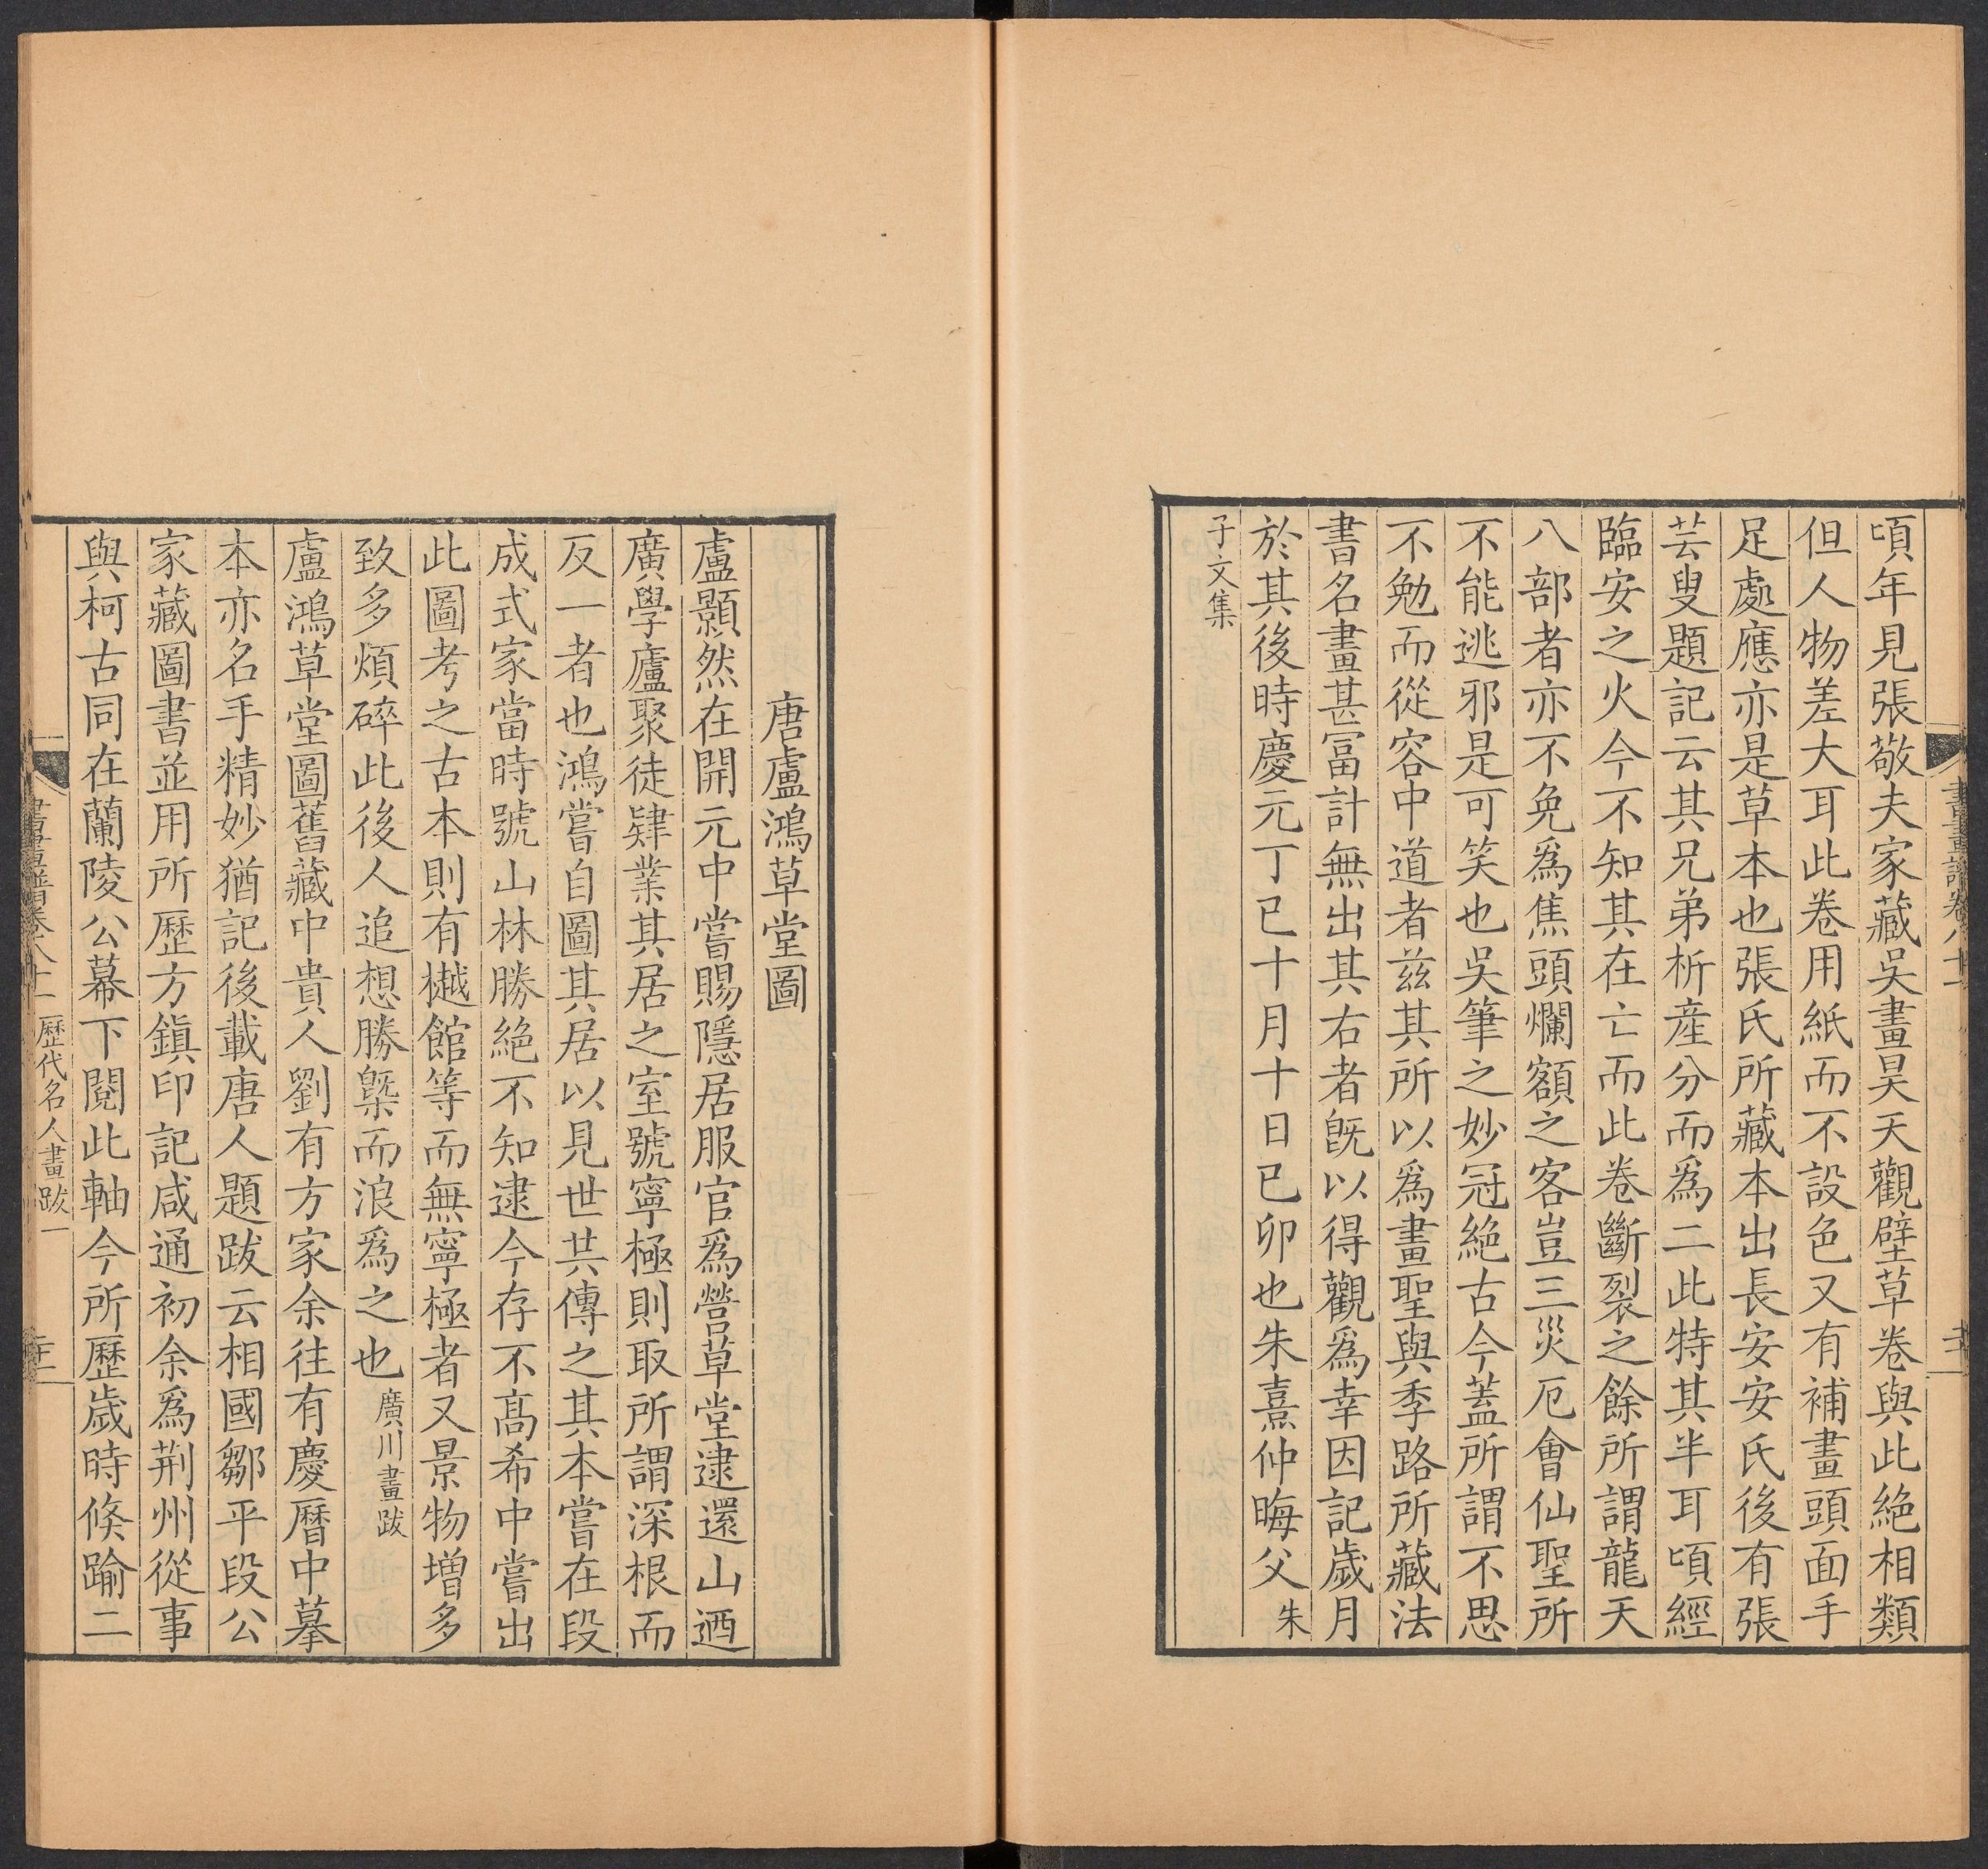 頃年見張敬夫家藏吳畫昊天觀壁草卷與此絕相類
但人物差大耳此卷用紙而不設色又有補畫頭面手
足處應亦是草本也張氏所藏本出長安安氏後有張
芸叟題記云其兄弟析產分而爲二此特其半耳頃經
臨安之火今不知其在亡而此卷斷裂之餘所謂龍天
八部者亦不免爲焦頭爛額之客豈三災厄會仙聖所
不能逃邪是可笑也吳筆之妙冠絕古今蓋所謂不思
不勉而從容中道者茲其所以爲畫聖與季路所藏法
書名畫甚冨計無出其右者旣以得觀爲幸因記歲月
於其後時慶元丁巳十月十日已卯也朱熹仲晦父朱
子文集
唐盧鴻草堂圖
盧顥然在開元中嘗賜隱居服官爲營草堂逮還山迺
廣學廬聚徒肄業其居之室號寧極則取所謂深根而
反一者也鴻嘗自圖其居以見世共傳之其本嘗在段
成式家當時號山林勝絕不知逮今存不高希中嘗出
此圖考之古本則有樾館等而無寧極者又景物增多
致多煩碎此後人追想勝槩而浪爲之也廣川畫跋
盧鴻草堂圖舊藏中貴人劉有方家余往有慶曆中摹
本亦名手精妙猶記後載唐人題跋云相國鄒平段公
家藏圖書並用所歷方鎮印記咸通初余爲荆州從事
與柯古同在蘭陵公幕下閱此軸今所歷歲時倏踰二
歷代名人畫跋一